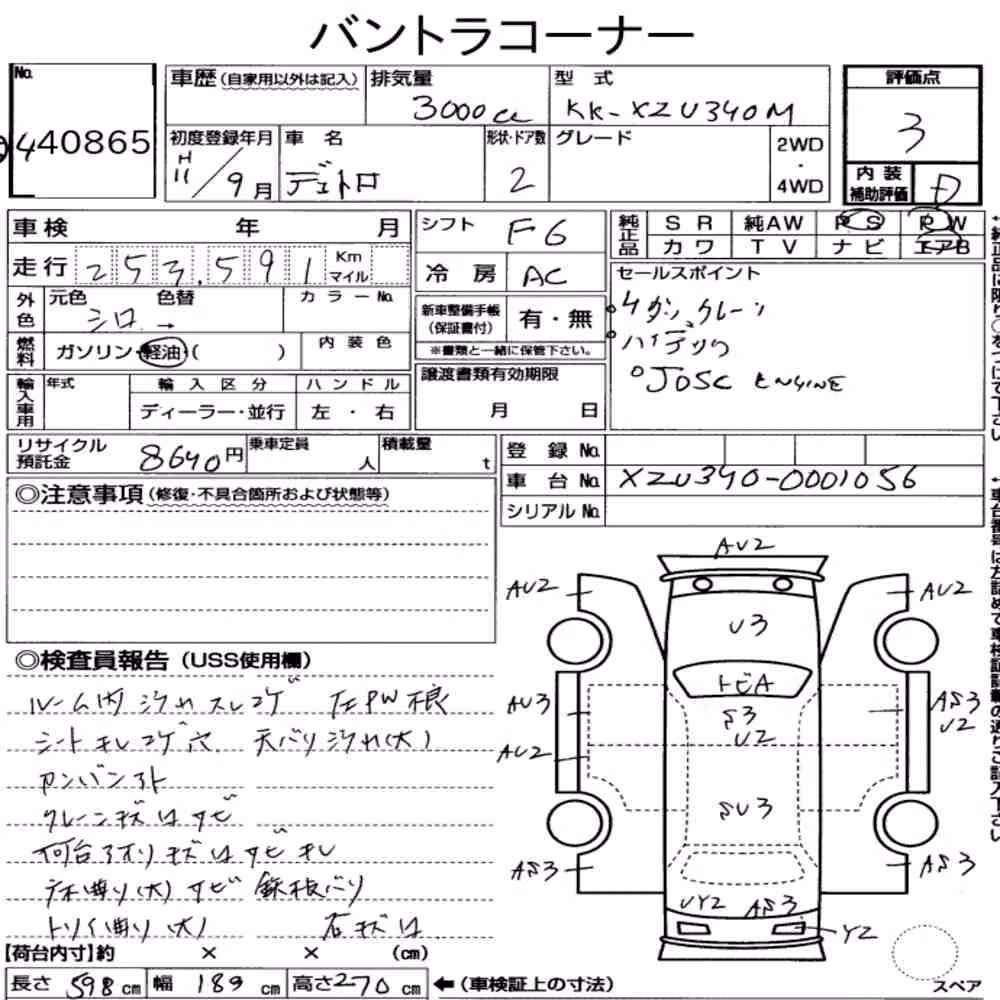 バントラコーナー
No.
440865
車歴 (自家用以外は記入)
排気量
3000cc
型 式
KK-XZU340M
評価点
3
初度登録年月
H
11/9月
車 名
デュトロ
形状・ドア数
2
グレード
2WD
・
4WD
内 装
補助評価
D
車検 年 月
シフト
F6
純正品
S R 純AW P S P W
カ ワ T V ナ ビ エアB
走行 253,591
Km
マイル
冷 房
AC
セールスポイント
4ダン クレーン
ハイデッグ
J05C ENGINE
外色
元色 色替
シロ →
カ ラ ー No.
新車整備手帳
(保証書付)
有・無
※書類と一緒に保管下さい。
燃料
ガソリン・軽油・( )
内 装 色
譲渡書類有効期限
月 日
輸入車用
年式
輸 入 区 分
ハ ン ド ル
ディーラー・並行
左 ・ 右
リサイクル
預託金
8640円
乗車定員
人
積載量
t
登 録 No.
車 台 No. XZU340-0001056
シリアル No.
◎注意事項 (修復・不具合箇所および状態等)
◎検査員報告 (USS使用欄)
ルーム内 汚れ スレ コゲ 左PW 根
シート キレ コゲ 穴 天バリ 汚れ(大)
カンバン アト
クレーン キズ凹 サビ
荷台 アオリ キズ凹 サビ キレ
曲り(大) サビ 鉄板バリ
トリイ曲り(大) 石キズ凹
AU2
AU2
AU2
U3
トビA
S3
U2
AU3
AU2
AS3
U2
SU3
AS3
AS3
UY2
AS3
Y2
【荷台内寸】約 × × (cm)
長さ 598cm 幅 189cm 高さ270cm ←(車検証上の寸法)
スペア